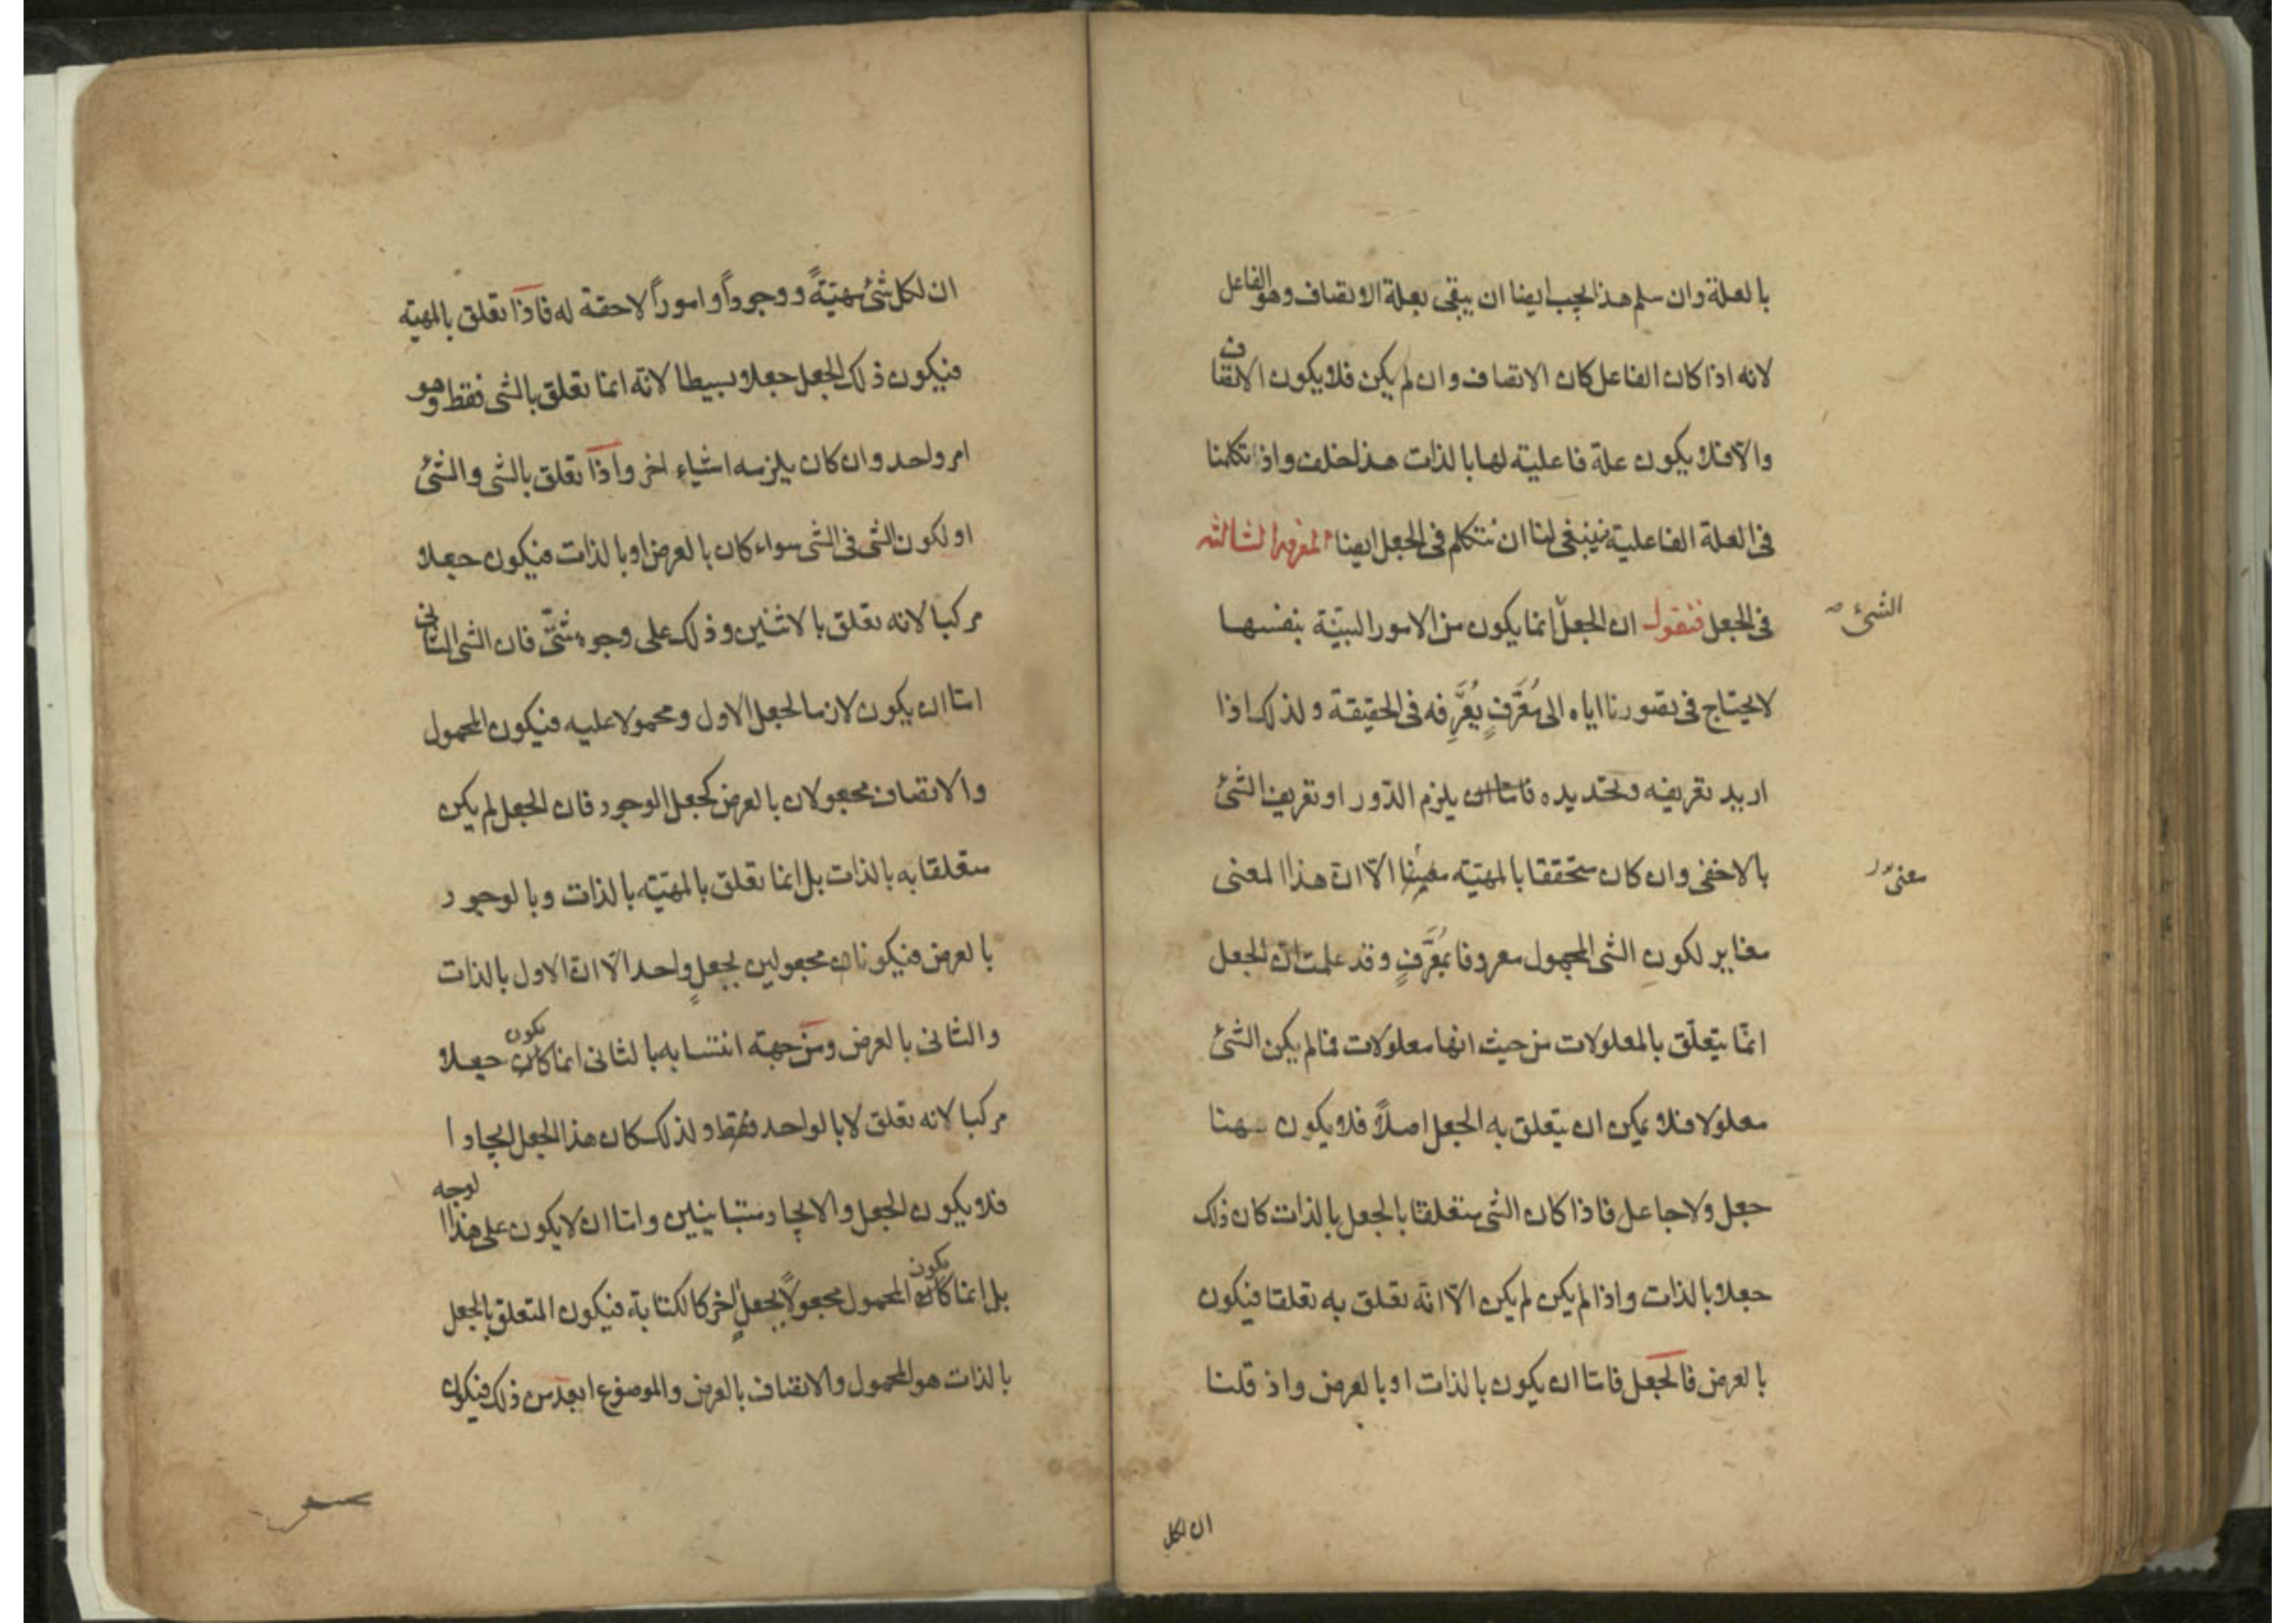 بالعلة وان سلم هذا يجب ايضا ان يبقى بعلة الاتصاف وهو الفاعل
لانه اذا كان الفاعل كان الاتصاف وان لم يكن فلا يكون الاتصاف
والا فلا يكون علة فاعلية لها بالذات هذا خلف واذ تكلمنا
فى العلة الفاعلية فينبغى لنا ان نتكلم فى الجعل ايضا المعرفة الثالثة
فى الجعل فنقول ان الجعل انما يكون من الامور البينة بنفسها
الشئ
لا يحتاج فى تصورنا اياه الى مُعَرِّفٍ يُعَرِّفه فى الحقيقة ولذلك اذا
اريد تعريفه وتحديده فاما ان يلزم الدّور او تعريف الشئ
بالاخفى وان كان متحققا بالمهيّة الّا انّ هذا المعنى
معنى
مغاير لكون الشى المجهول معروفا بمُعَرِّفٍ وقد علمت ان الجعل
انّما يتعلّق بالمعلولات من حيث انها معلولات فما لم يكن الشئ
معلولا فلا يمكن ان يتعلق به الجعل اصلاً فلا يكون ههنا
جعل ولا جاعل فاذا كان الشى متعلقا بالجعل بالذات كان ذلك
جعلا بالذات واذا لم يكن لم يكن الّا انّه تعلق به تعلقا فيكون
بالعرض فالجعل فاما ان يكون بالذات او بالعرض واذ قلنا
ان لكل
ان لكل شئ مهيّةً ووجوداً واموراً لاحقة له فاذا تعلق بالمهيّه
فيكون ذلك الجعل جعلا بسيطا لانّه انما تعلق بالشى فقط وهو
امر واحد وان كان يلزمه اشياء اخر واذا تعلق بالشى والشئ
او لكون الشى فى الشى سواء كان بالعرض او بالذات فيكون جعلا
مركبا لانه تعلق بالاثنين وذلك على وجوه شتّى فان الشى الثانى
اما ان يكون لازما لجعل الاول ومحمولا عليه فيكون المحمول
والاتصاف مجعولان بالعرض كجعل الوجود فان الجعل لم يكن
متعلقا به بالذات بل انما تعلق بالمهيّه بالذات وبالوجود
بالعرض فيكونان مجعولين بجعلٍ واحد الّا انّ الاول بالذات
والثانى بالعرض ومن جهة انتسابه بالثانى انما يكون جعلا
مركبا لانه تعلق لا بالواحد فقط ولذلك كان هذا الجعل ايجادا
فلا يكون الجعل والايجاد متباينين واما ان لا يكون على هذا الوجه
بل انما يكون المحمول مجعولاً بجعلٍ اخر كالكتابة فيكون المتعلق بالجعل
بالذات هو المحمول والاتصاف بالعرض والموضوع ابعد من ذلك فيكون